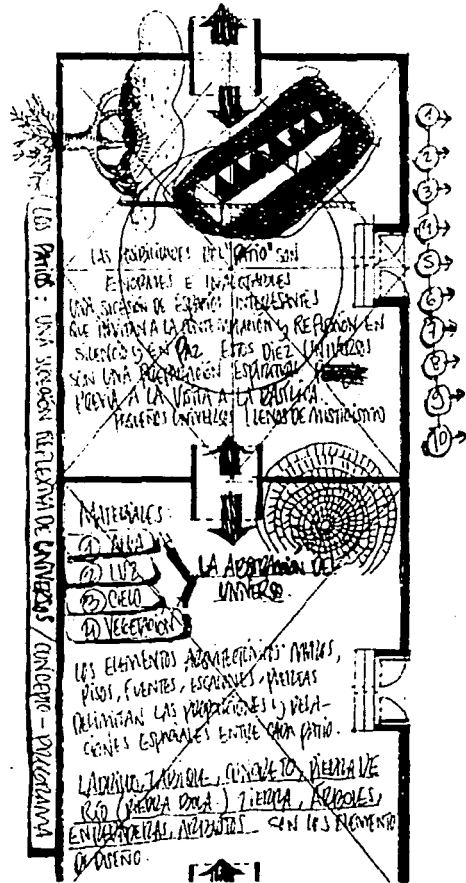 LOS PATIOS : UNA SUCESION REFLEXIVA DE UNIVERSOS / CONCEPTO - PROGRAMA
LAS POSIBILIDADES DEL "PATIO" SON
ENORMES E INAGOTABLES
UNA SUCESION DE ESPACIOS INTERESANTES
QUE INVITAN A LA CONTEMPLACION Y REFLEXION EN
SILENCIO Y EN PAZ. ESTOS DIEZ UNIVERSOS
SON UNA PREPARACION ESPIRITUAL
PREVIA A LA VISITA A LA BASILICA.
PEQUEÑOS UNIVERSOS LLENOS DE MISTICISMO
1
2
3
4
5
6
7
8
9
10
MATERIALES:
① AGUA
② LUZ
③ CIELO
④ VEGETACION
LA ABSTRACCION DEL
UNIVERSO.
LOS ELEMENTOS ARQUITECTONICOS MUROS,
PISOS, FUENTES, ESCALONES, PUERTAS
DELIMITAN LAS PROPORCIONES Y RELA-
CIONES ESPACIALES ENTRE CADA PATIO.
LADRILLO, TABIQUE, CONCRETO, PIEDRA DE
RIO (PIEDRA BOLA) TIERRA, ARBOLES,
ENREDADERAS, ARBUSTOS SON LOS ELEMENTOS
DE DISEÑO.